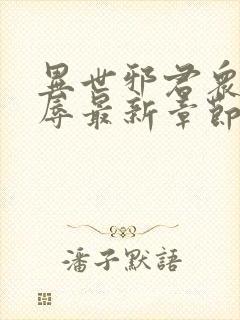 異世邪君衆
辱最新章節
潘子默語